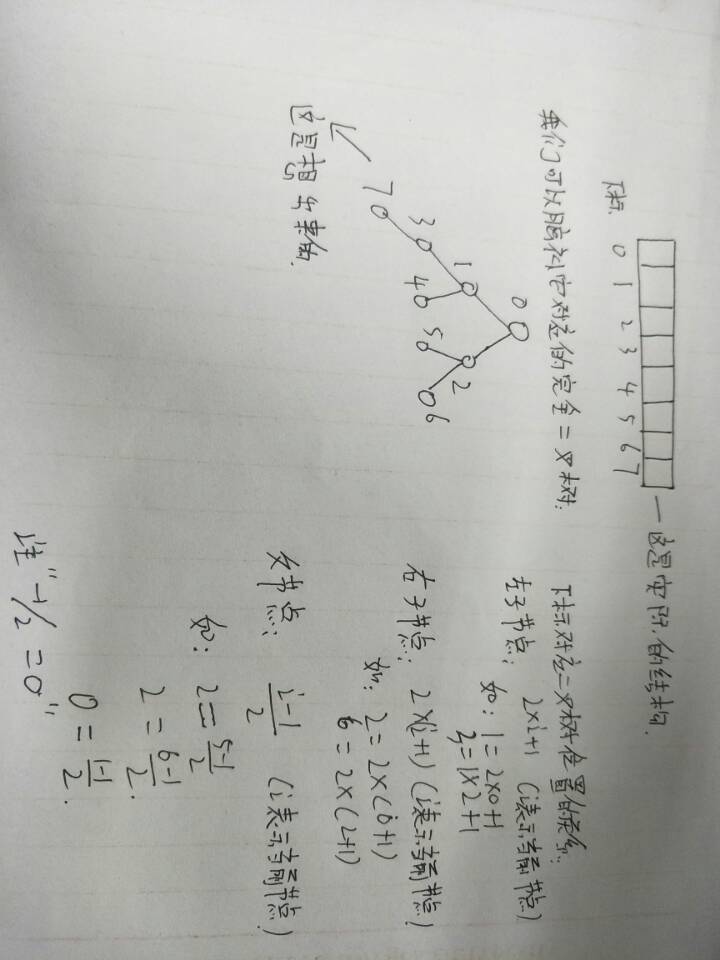 一 这是实际的结构.
下标: 0 1 2 3 4 5 6 7
我们可以脑补它对应的完全二叉树:
0
1 2
3 4 5 6
7
这是指出来的.
下标对应二叉树位置的关系:
左子节点: 2×i+1 (i表示当前节点)
如: 1=2×0+1
3=1×2+1
右子节点: 2×(i+1) (i表示当前节点)
如: 2=2×(0+1)
6=2×(2+1)
父节点: i-1/2 (i表示当前节点)
如: 2=5-1/2
2=6-1/2.
0=1-1/2.
注"-1/2=0"